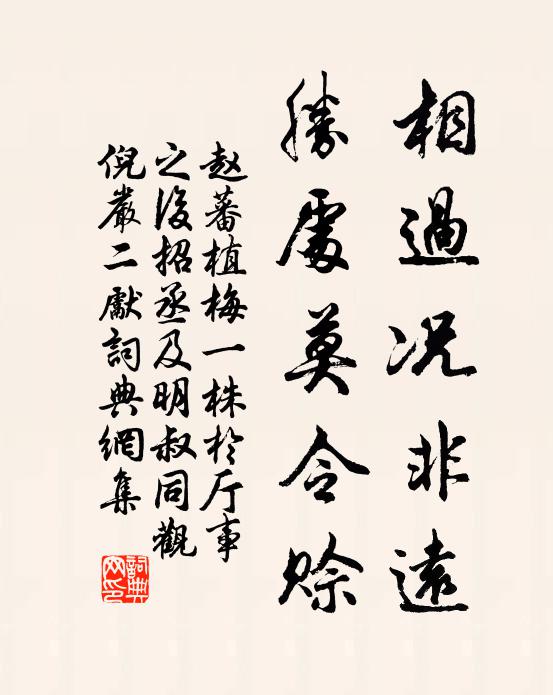 相過况非遠
勝處莫令賒
赵蕃植梅一株於厅事
之後招丞及明叔同觀
倪嚴二獻詞典網集
詞典网印